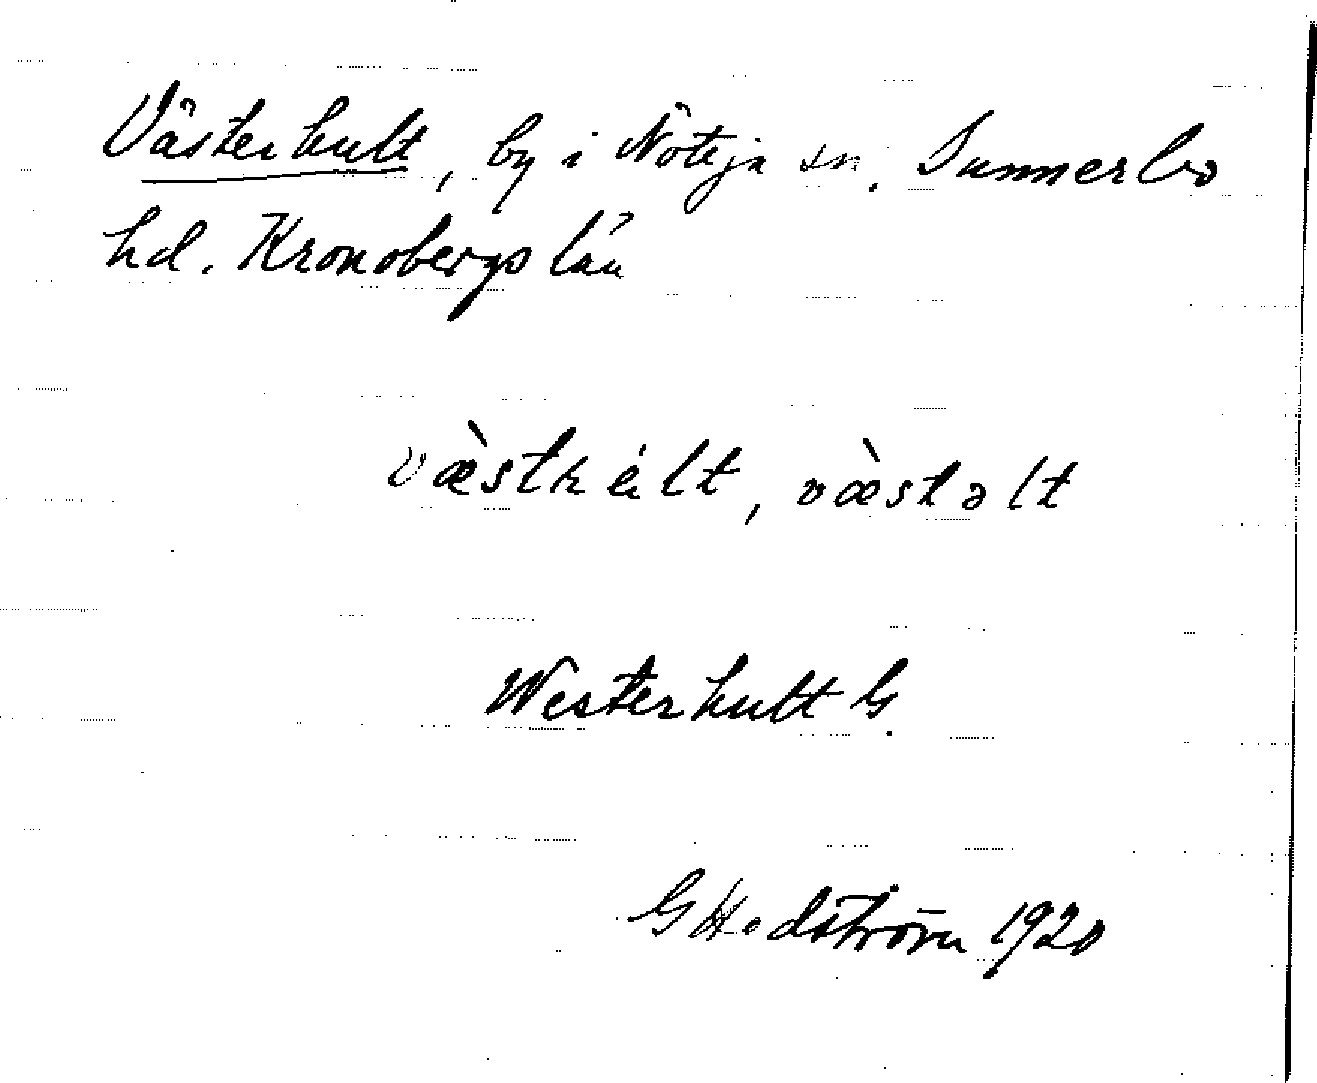 Västerhult, by i Nöteja sn. Sunnerbo
hd. Kronobergs län
væ̀sthélt, væ̀stəlt
Westerhult G.
G Hedström 1920